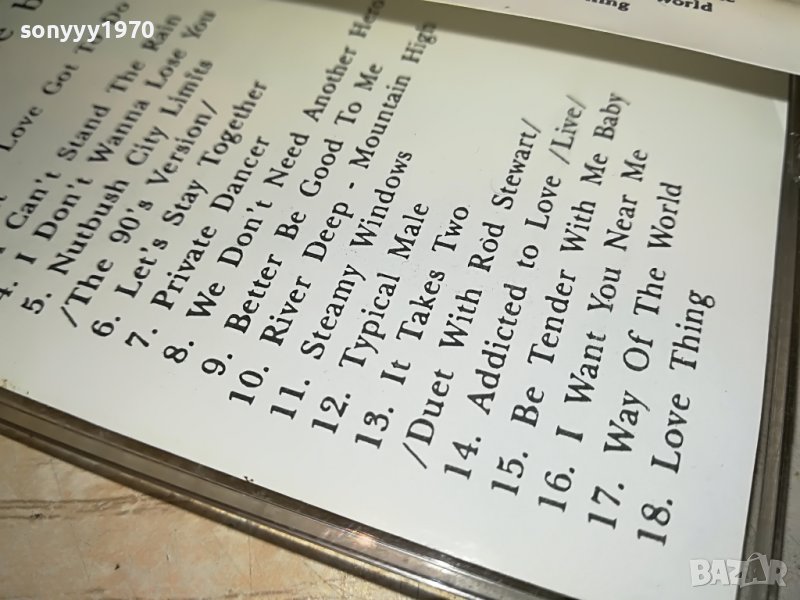 sonyyy1970
World
Love Got To Do
I Can't Stand The Rain
4. I Don't Wanna Lose You
5. Nutbush City Limits
/The 90's Version/
6. Let's Stay Together
7. Private Dancer
8. We Don't Need Another Hero
9. Better Be Good To Me
10. River Deep - Mountain High
11. Steamy Windows
12. Typical Male
13. It Takes Two
/Duet With Rod Stewart/
14. Addicted to Love /Live/
15. Be Tender With Me Baby
16. I Want You Near Me
17. Way Of The World
18. Love Thing
BAZAR